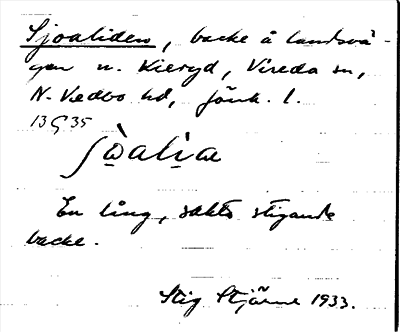 Sjoaliden, backe å landsvä-
gen n. Kieryd, Vireda sn,
N. Vedbo hd, Jönk. l.
13 G 35
ʃòalìa
En lång, sakta stigande
backe.
Stig Stjärne 1933.